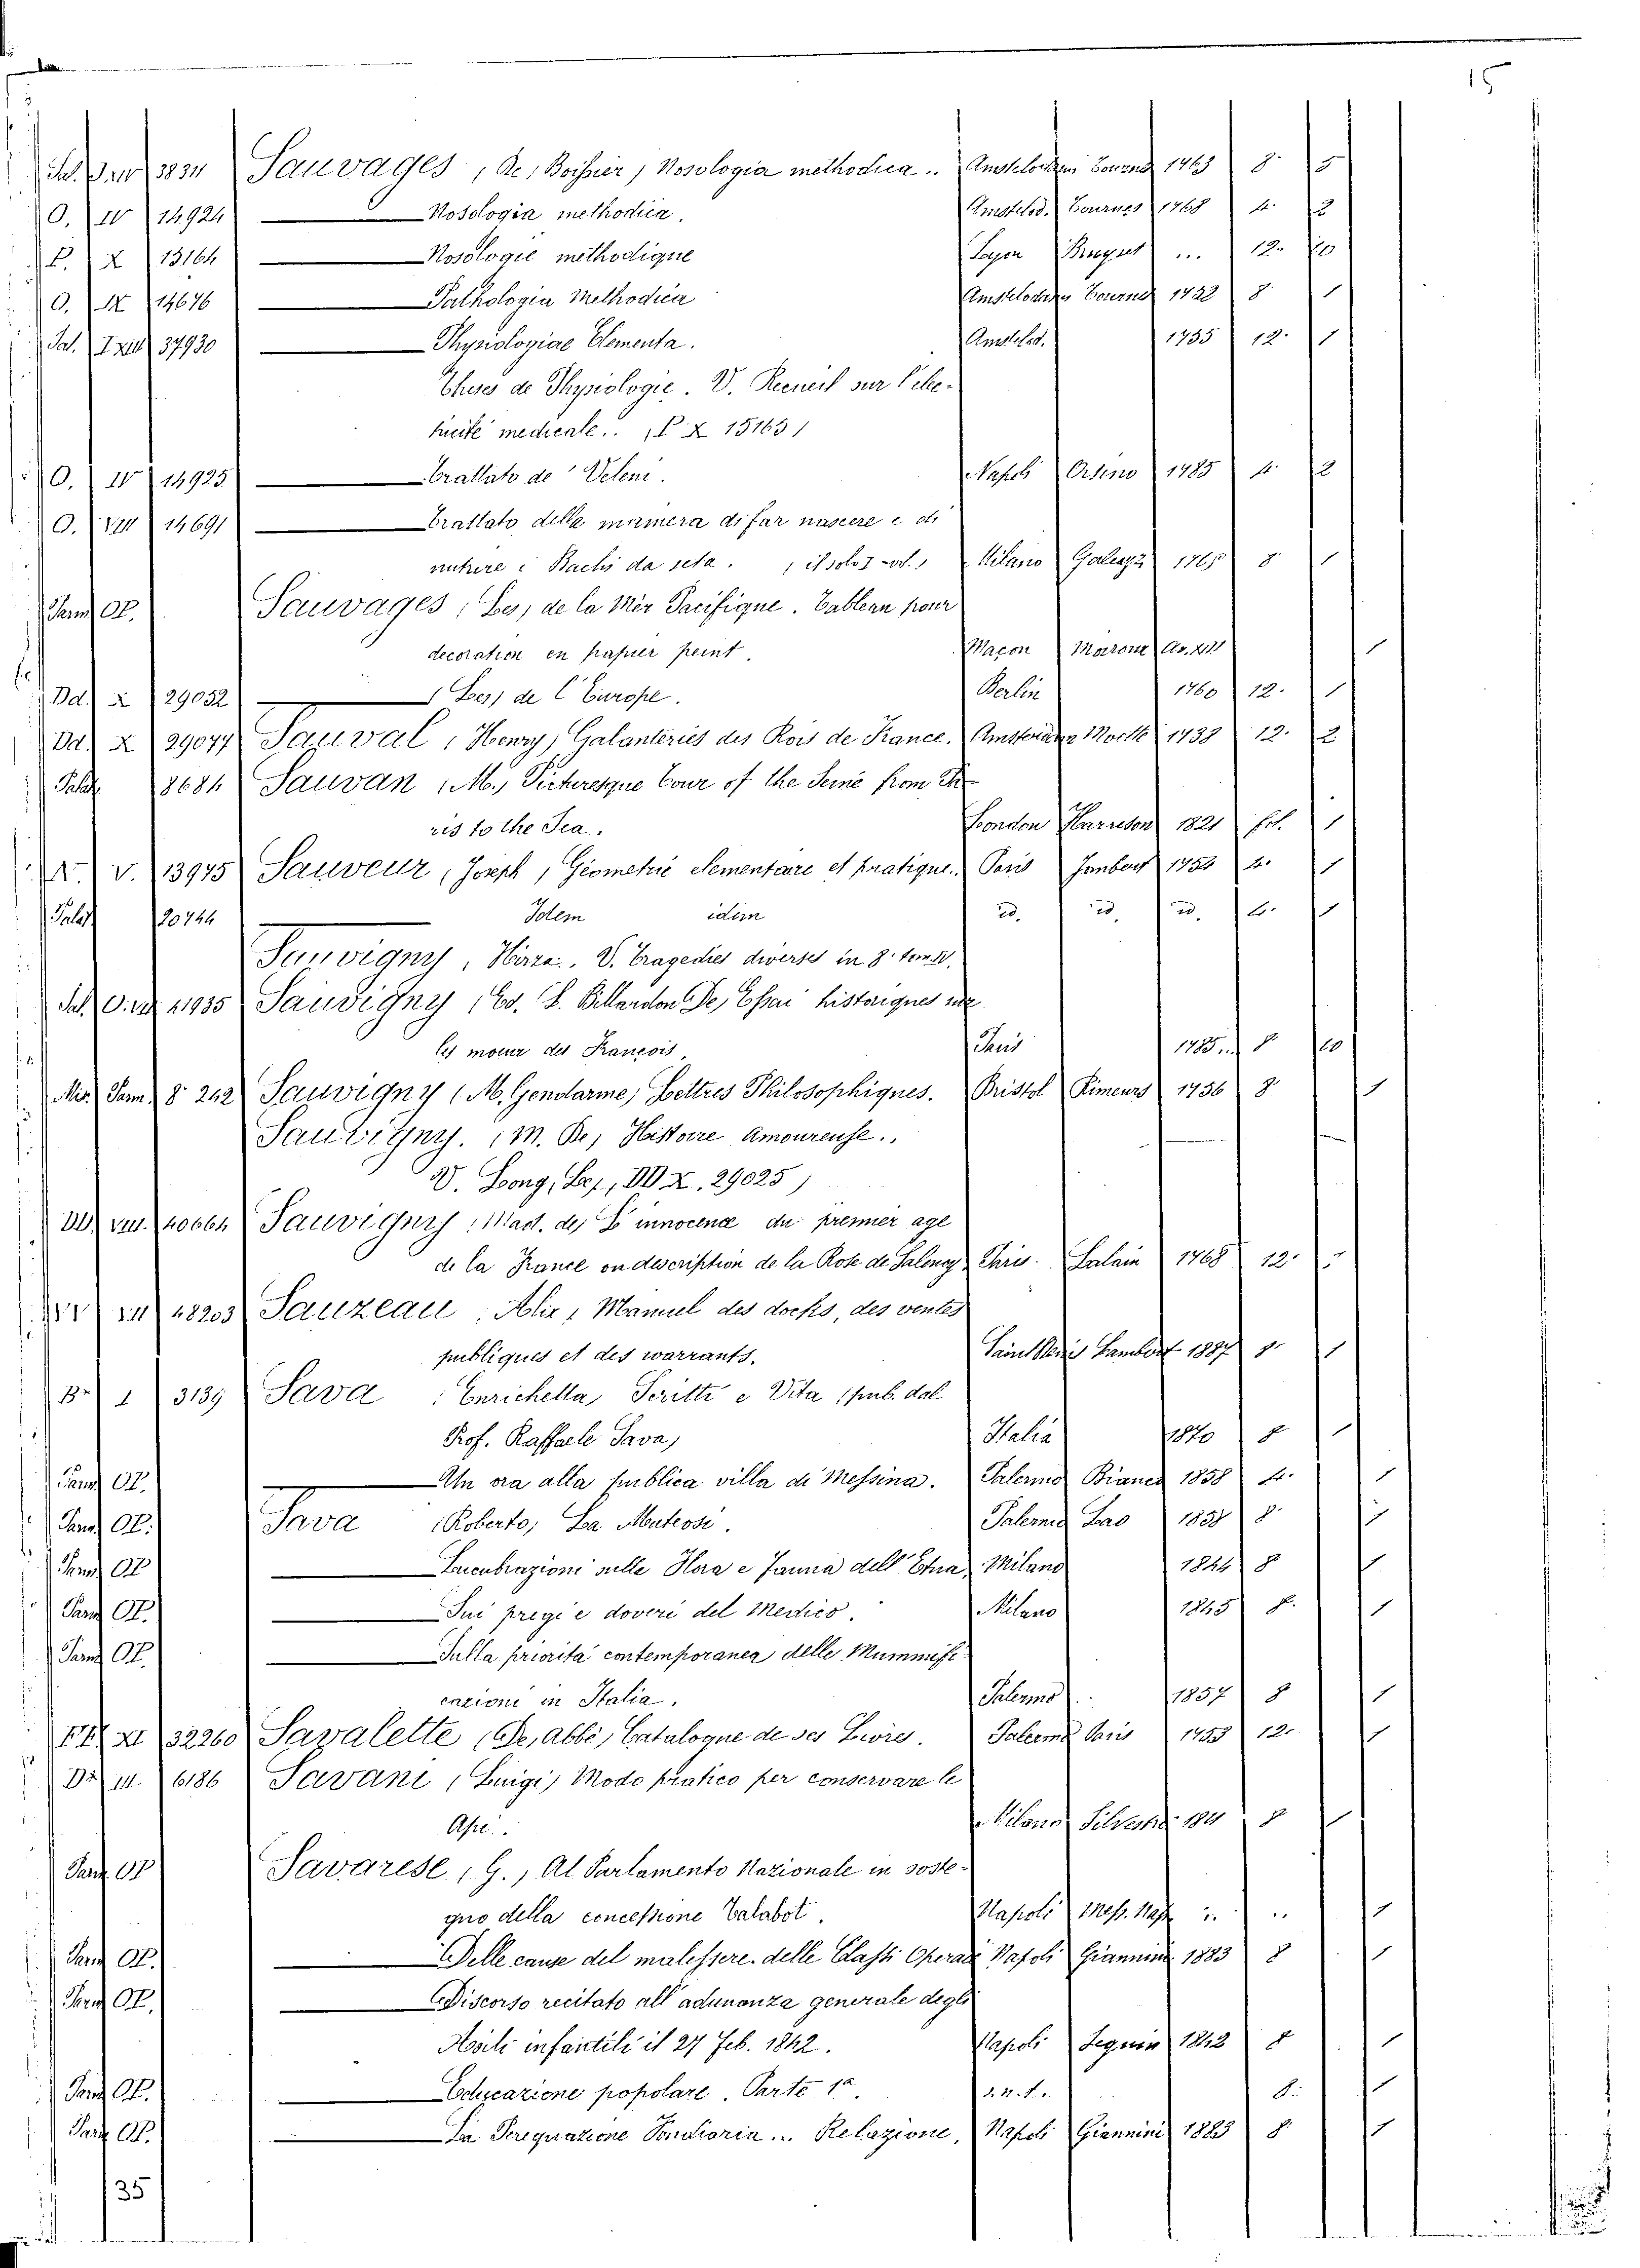 15
3834 Sauvages, De, Boissier, Nosologia methodica.. 8 5
O. IV 14924 Nosologia methodica. Amstelod. Tournes 1768 4. 2
P. X 15164 Nosologie methodique Lyon Bruyset ... 12. 10
O. IX 14676 Pathologia Methodica 8 1
Sal. 37930 Physiologiae Elementa. Amstelod. 1755 12. 1
Theses de Physiologie. V. Recueil sur l'ele-
tricité medicale.. (P X 15163)
O. IV 14925 Trattato de' Veleni. Napoli Orsino 1785 4. 2
O. 14691 Trattato della maniera di far nascere e di
nutrire i Bachi da seta. (il solo I vol.) Milano Galeazzi 1765 8 1
Pam. Op. Sauvages, Les, de la Mer Pacifique. Tableau pour
decoration en papier peint. Macon An. XIII 1
Dd. X 29052 (Les) de l'Europe. Berlin 1760 12. 1
Dd. X 29077 Sauval, Henry, Galanteries des Rois de France. 12. 2
8684 Sauvan, M., Picturesque Tour of the Seine from Pa-
ris to the Sea. London Harrison 1821 fol. 1
V. 13975 Sauveur, Joseph, Géometrie elementaire et pratique. Paris Jombert 4. 1
20744 Idem idem id. id. id. 4. 1
Sauvigny, Hirza.. V. Tragedies diverses in 8. tom. IV.
Sauvigny, Ed. L. Billardon De, Essai historiques sur
les moeur des Francois. Paris 1785.. 8 10
Mis. Pam. 8. 242 Sauvigny (M. Gendarme) Lettres Philosophiques. Bristol Rimeurs 1756 8. 1
Sauvigny. (M. De) Histoire Amoureuse..
V. Long, Le, (DD X. 29025)
DD VIII. 40664 Sauvigny (Mad. de) L'innocence du premier age
de la France ou description de la Rose de Salency Paris. Lalain 1768 12.
III 48203 Sauzeau, Alix, Manuel des docks, des ventes
publiques et des warrants. 8. 1
B. I 3139 Sava (Enrichetta) Scritti e Vita (pub. dal
Prof. Raffaele Sava) Italia 1870 8 1
Pam. Op. Un ora alla publica villa di Messina. Palermo 1858 4. 1
Pam. Op. Sava (Roberto) Palermo Lao 8. 1
Pam. Op. Lucubrazioni sulle Flora e Fauna dell'Etna Milano 1844 8 1
Pam. Op. Sui pregi e doveri del Medico. Milano 1845 8. 1
Pam. Op. Sulla priorità contemporanea delle Mummifi-
cazioni in Italia. Palermo 1857 8 1
XI 32260 Savalette (De, Abbé) Catalogue de ses Livres. Paris 12. 1
III. 6186 Savani (Luigi) Modo pratico per conservare le
Api.. Milano Silvestri 8 1
Pam. Op. Savarese (G.) Al Parlamento Nazionale in soste-
gno della concessione Talabot. Napoli .. 1
Pam. Op. Delle cause del malessere delle Classi Operaie Napoli Giannini 1883 8 1
Pam. Op. Discorso recitato all'adunanza generale degli
Asili infantili il 27 Feb. 1842. Napoli Seguin 1842 8 1
Pam. Op. Educazione popolare. Parte 1a. 8. 1
Pam. Op. La Perequazione Fondiaria... Relazione. Napoli Giannini 1883 8. 1
35